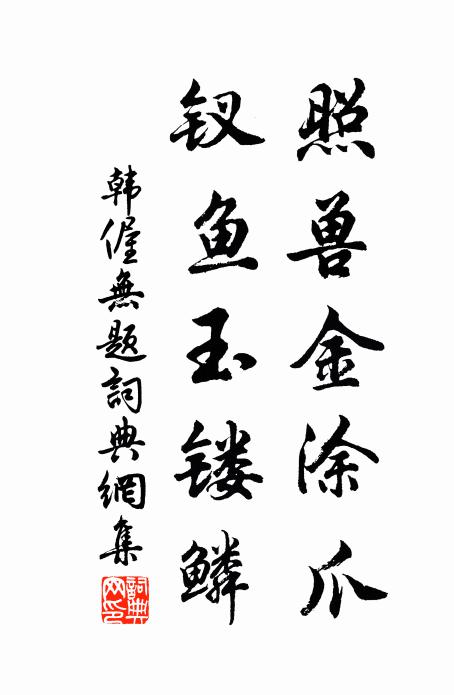 照兽金涂爪
钗鱼玉镂鳞
韩偓無题詞典網集
詞典网印